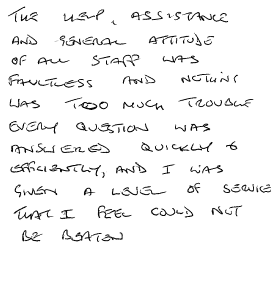 THE HELP, ASSISTANCE
AND GENERAL ATTITUDE
OF ALL STAFF WAS
FAULTLESS AND NOTHING
WAS TOO MUCH TROUBLE
EVERY QUESTION WAS
ANSWERED QUICKLY &
EFFICIENTLY, AND I WAS
GIVEN A LEVEL OF SERVICE
THAT I FEEL COULD NOT
BE BEATEN